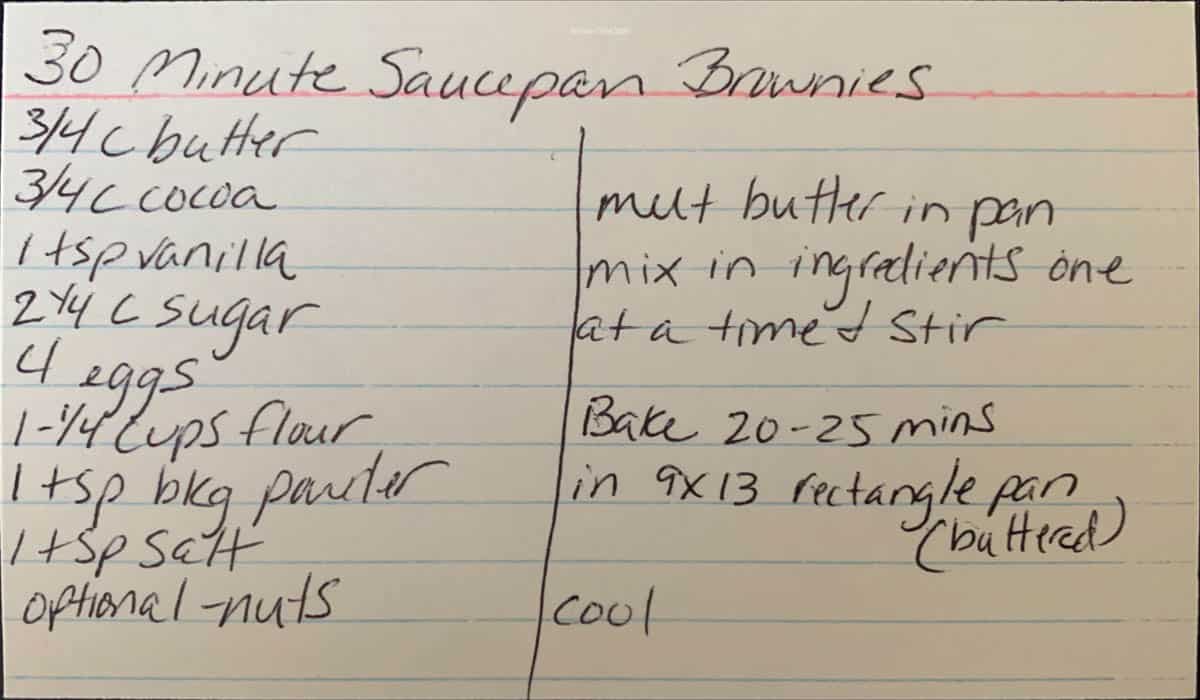 30 Minute Saucepan Brownies
3/4 C butter
3/4 C cocoa
1 tsp vanilla
2 1/4 C sugar
4 eggs
1-1/4 cups flour
1 tsp bkg powder
1 tsp salt
optional - nuts
melt butter in pan
mix in ingredients one
at a time & stir
Bake 20-25 mins
in 9x13 rectangle pan
(buttered)
cool